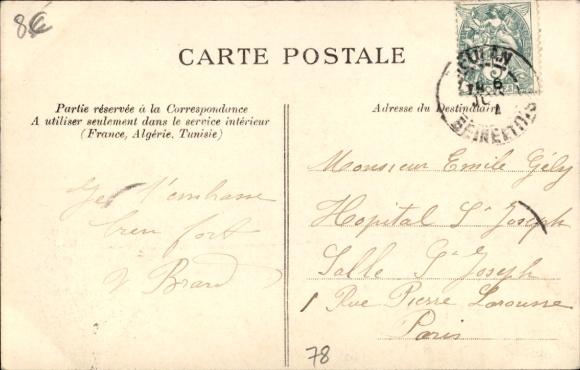 8€
CARTE POSTALE
MEULAN
5
SEINE ET OISE
Partie réservée à la Correspondance
A utiliser seulement dans le service intérieur
(France, Algérie, Tunisie)
Adresse du Destinataire
Je t'embrasse
bien fort
V Brard
Monsieur Emile Gély
Hopital St Joseph
Salle St Joseph
1 Rue Pierre Larousse
Paris
78